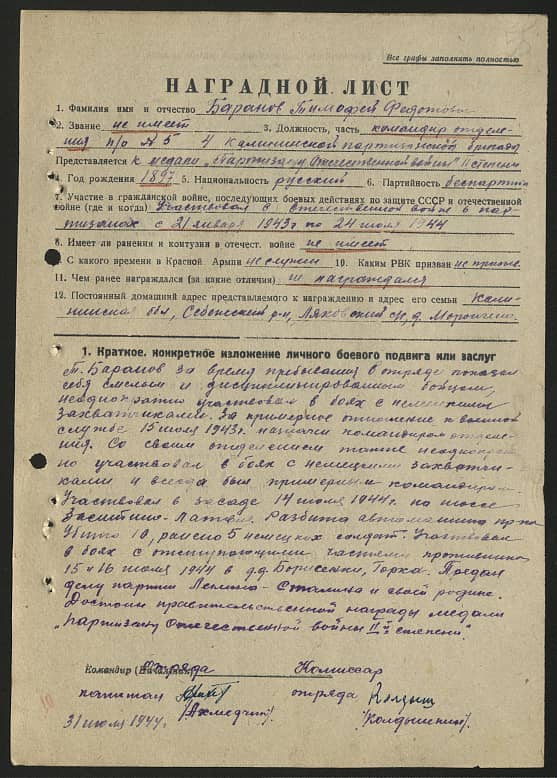 Все графы заполнить полностью
НАГРАДНОЙ ЛИСТ
1. Фамилия имя и отчество Баранов Тимофей Федотович
2. Звание не имеет 3. Должность, часть командир отделе-
ния п/о №5 4 Калининской партизанской бригады
Представляется к медали „Партизану Отечественной войны" II степени
4. Год рождения 1897 5. Национальность русский 6. Партийность беспартийн
7. Участие в гражданской войне, последующих боевых действиях по защите СССР и отечественной
войне (где и когда) Участвовал в отечественной войне в пар-
тизанах с 21 января 1943г по 24 июля 1944
8. Имеет ли ранения и контузии в отечест. войне не имеет
9. С какого времени в Красной Армии не служил 10. Каким РВК призван не призыв.
11. Чем ранее награждался (за какие отличия) не награждался
12. Постоянный домашний адрес представляемого к награждению и адрес его семьи Кали-
нинская обл, Себежский р-н, Ляховский с/с, д.
1. Краткое, конкретное изложение личного боевого подвига или заслуг
Т. Баранов за время пребывания в отряде показал
себя смелым и дисциплинированным бойцом,
неоднократно участвовал в боях с немецкими
захватчиками. За примерное отношение к военной
службе 15 июля 1943г. назначен командиром отделе-
ния. Со своим отделением также неоднократ-
но участвовал в боях с немецкими захватчи-
ками и всегда был примерным командиром
Участвовал в засаде 14 июля 1944г. на шоссе
Заситино-Латвия. Разбита автомашина пр-ка
Убито 10, ранено 5 немецких солдат. Участвовал
в боях с отступающими частями противника
15 и 16 июля 1944 в д.д. Борисенки, Горка. Предан
делу партии Ленина-Сталина и своей родине.
Достоин правительственной награды медали
„Партизану Отечественной войны II й степени".
Командир отряда Комиссар
капитан отряда
(Ахмедчин) (Колдышкин)
31 июля 1944г.